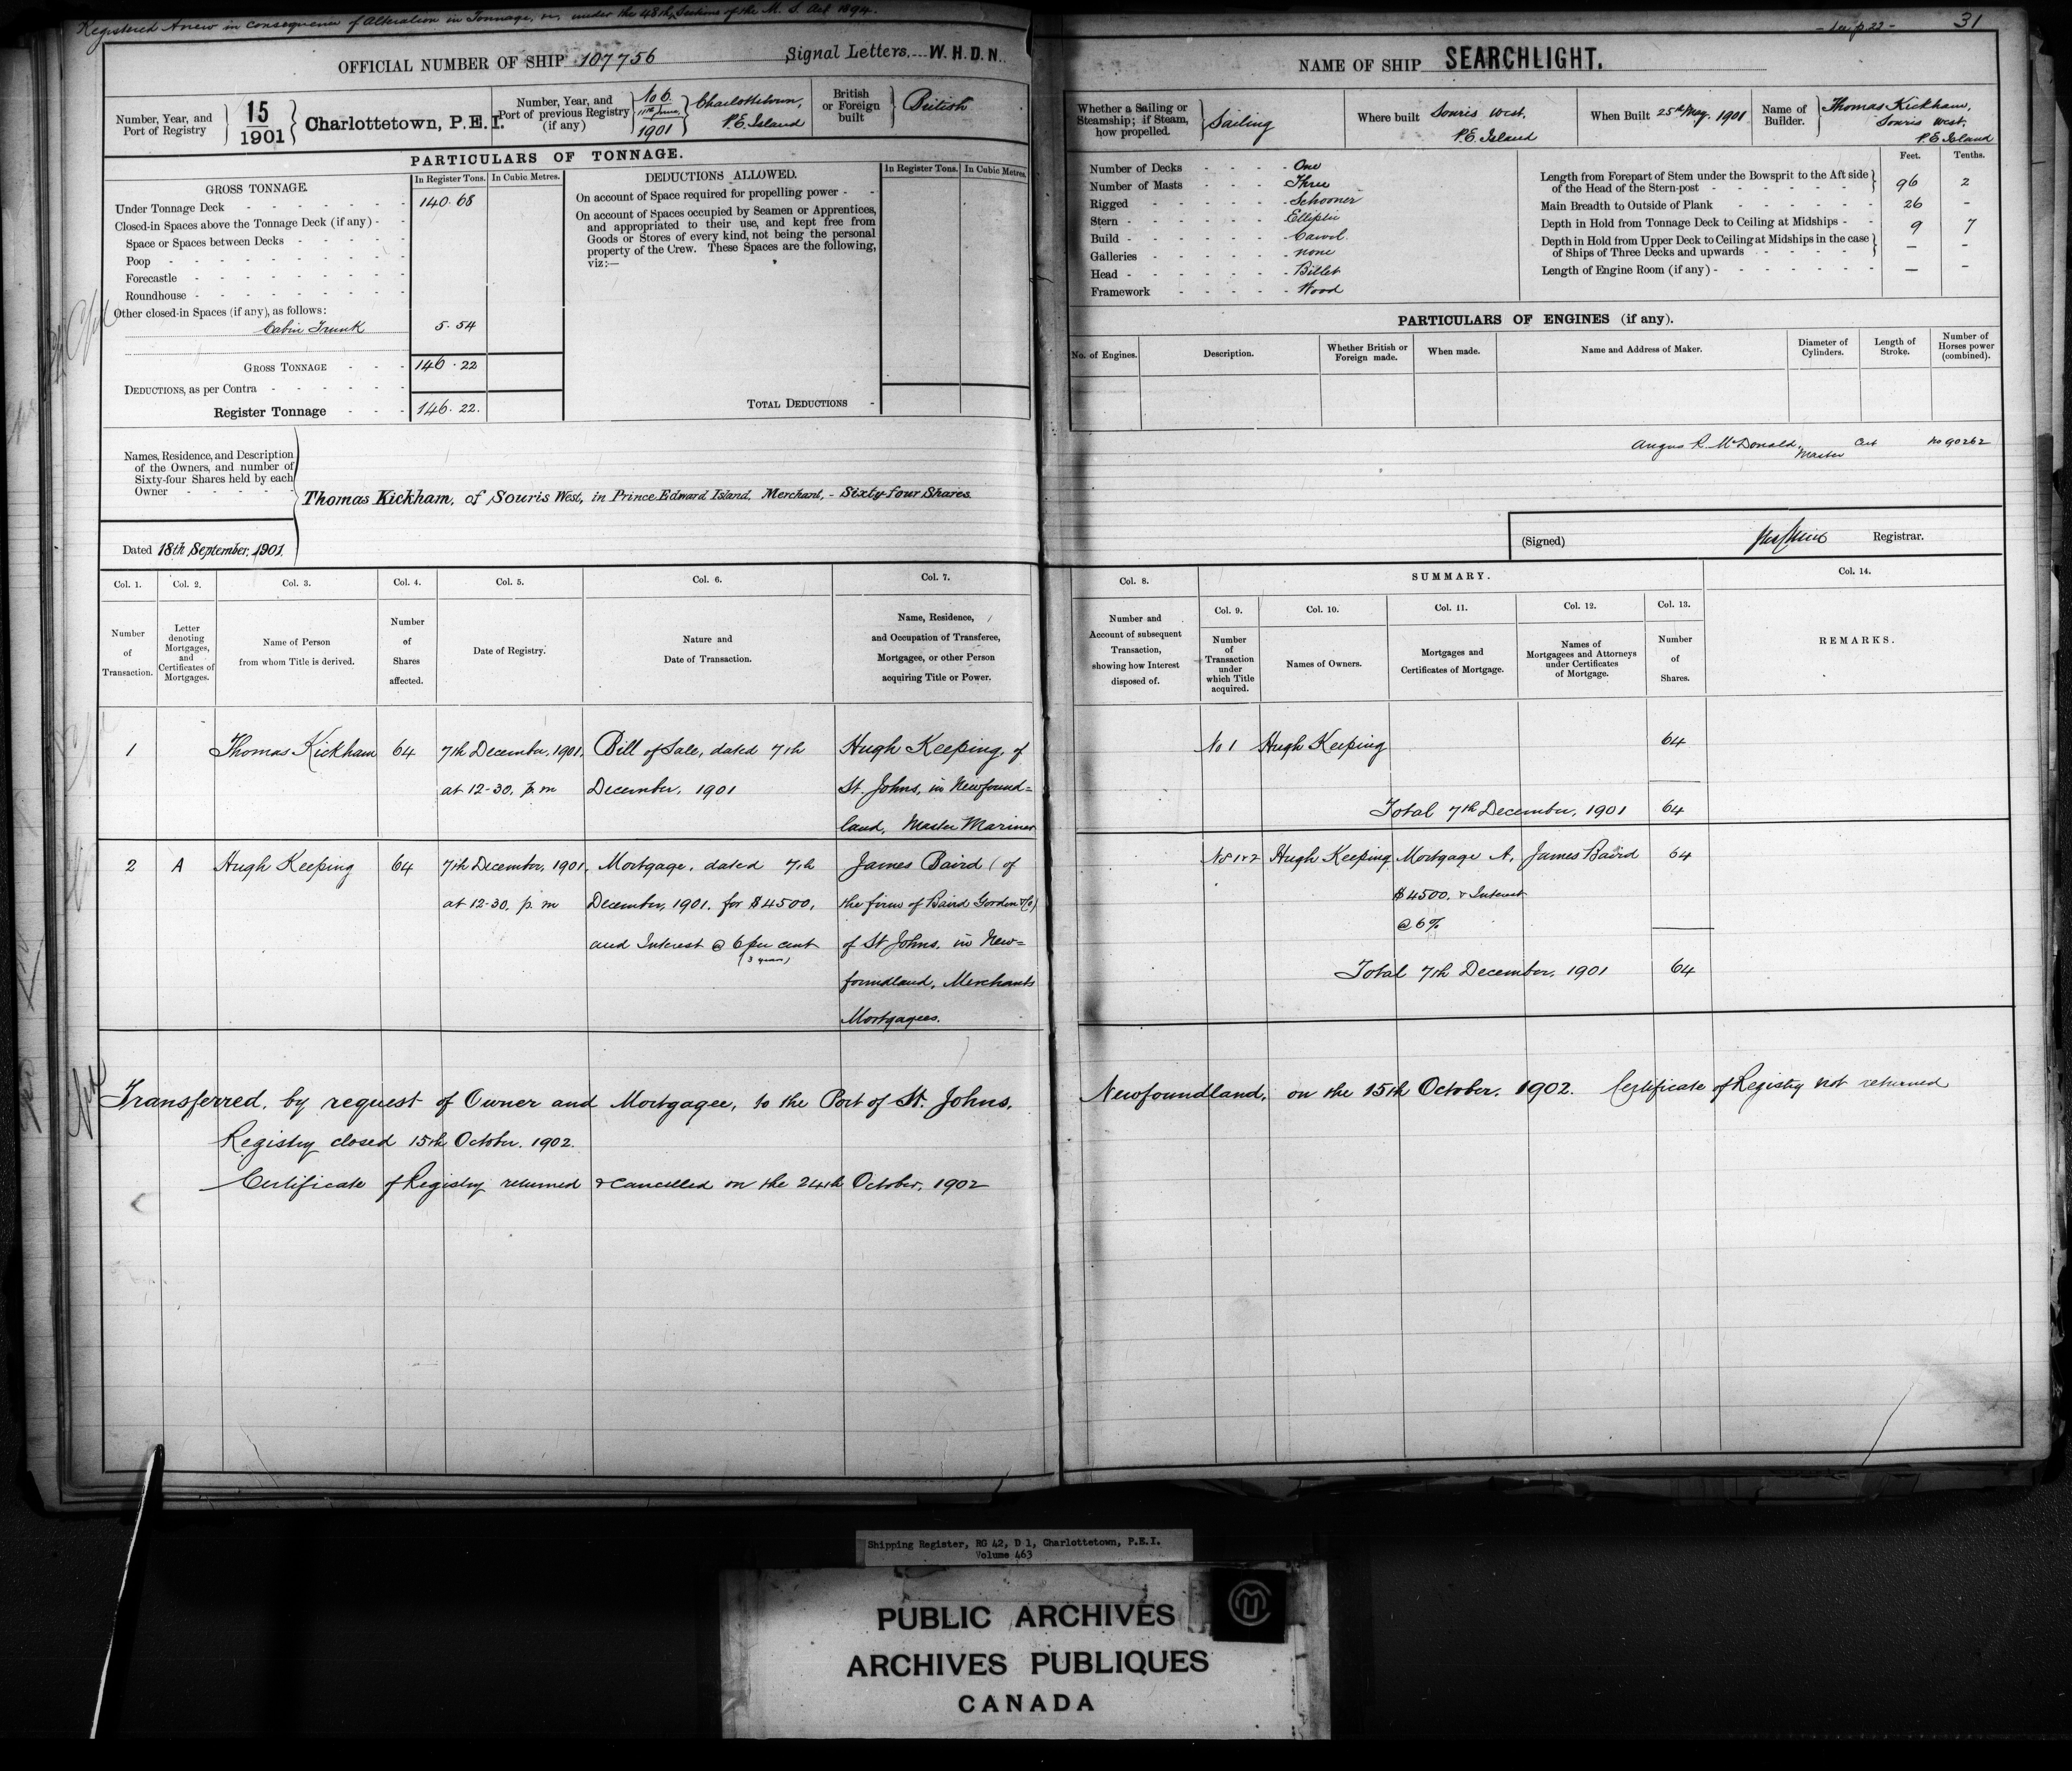 Registered Anew in consequence of Alteration in Tonnage, or, under the 48th, Sections of the M. S. Act 1894.
OFFICIAL NUMBER OF SHIP 107756 Signal Letters.... W. H. D. N.
Number, Year, and Port of Registry 15 / 1901 Charlottetown, P.E.I.
Number, Year, and Port of previous Registry (if any) No 6. 11th June, 1901 Charlottetown, P.E. Island
British or Foreign built British
PARTICULARS OF TONNAGE.
GROSS TONNAGE. In Register Tons. In Cubic Metres.
Under Tonnage Deck 140.68
Closed-in Spaces above the Tonnage Deck (if any)
Space or Spaces between Decks
Poop
Forecastle
Roundhouse
Other closed-in Spaces (if any), as follows:
Cabin Trunk 5.54
GROSS TONNAGE 146.22
DEDUCTIONS, as per Contra
Register Tonnage 146.22.
DEDUCTIONS ALLOWED. In Register Tons. In Cubic Metres.
On account of Space required for propelling power
On account of Spaces occupied by Seamen or Apprentices,
and appropriated to their use, and kept free from
Goods or Stores of every kind, not being the personal
property of the Crew. These Spaces are the following,
viz:—
TOTAL DEDUCTIONS
Names, Residence, and Description
of the Owners, and number of
Sixty-four Shares held by each
Owner
Thomas Kickham, of Souris West, in Prince Edward Island, Merchant, - Sixty-four Shares.
Dated 18th September, 1901.
Col. 1. Col. 2. Col. 3. Col. 4. Col. 5. Col. 6. Col. 7.
Number of Transaction.
Letter denoting Mortgages, and Certificates of Mortgages.
Name of Person from whom Title is derived.
Number of Shares affected.
Date of Registry.
Nature and Date of Transaction.
Name, Residence, and Occupation of Transferee, Mortgagee, or other Person acquiring Title or Power.
1 Thomas Kickham 64 7th December, 1901, Bill of Sale, dated 7th Hugh Keeping, of
at 12-30. p.m December, 1901 St. Johns, in Newfound=
land, Master Mariner
2 A Hugh Keeping 64 7th December, 1901, Mortgage, dated 7th James Baird (of
at 12-30. p.m December, 1901. for $4500, the firm of Baird Gordon & Co)
and Interest @ 6 per cent of St Johns, in New=
(3 years)
foundland, Merchants
Mortgagees.
Transferred, by request of Owner and Mortgagee, to the Port of St. Johns,
Registry closed 15th October. 1902.
Certificate of Registry returned & cancelled on the 24th October, 1902
31
NAME OF SHIP SEARCHLIGHT.
Whether a Sailing or Steamship; if Steam, how propelled. Sailing
Where built Souris West, P.E. Island
When Built 25th May, 1901
Name of Builder. Thomas Kickham, Souris West, P.E. Island
Number of Decks One
Number of Masts Three
Rigged Schooner
Stern Elliptic
Build Carvel
Galleries None
Head Billet
Framework Wood
Feet. Tenths.
Length from Forepart of Stem under the Bowsprit to the Aft side
of the Head of the Stern-post 96 2
Main Breadth to Outside of Plank 26 -
Depth in Hold from Tonnage Deck to Ceiling at Midships 9 7
Depth in Hold from Upper Deck to Ceiling at Midships in the case
of Ships of Three Decks and upwards — -
Length of Engine Room (if any) — -
PARTICULARS OF ENGINES (if any).
No. of Engines. Description. Whether British or Foreign made. When made. Name and Address of Maker. Diameter of Cylinders. Length of Stroke. Number of Horses power (combined).
Angus R. McDonald, Master Cert No 90262
(Signed) Registrar.
Col. 8. SUMMARY. Col. 14.
Col. 9. Col. 10. Col. 11. Col. 12. Col. 13.
Number and Account of subsequent Transaction, showing how Interest disposed of.
Number of Transaction under which Title acquired.
Names of Owners.
Mortgages and Certificates of Mortgage.
Names of Mortgagees and Attorneys under Certificates of Mortgage.
Number of Shares.
REMARKS.
No 1 Hugh Keeping 64
Total 7th December, 1901 64
No 1 & 2 Hugh Keeping Mortgage A, James Baird 64
$4500. & Interest
@ 6%
Total 7th December, 1901 64
Newfoundland, on the 15th October. 1902. Certificate of Registry not returned
Shipping Register, RG 42, D 1, Charlottetown, P.E.I.
Volume 463
PUBLIC ARCHIVES
ARCHIVES PUBLIQUES
CANADA